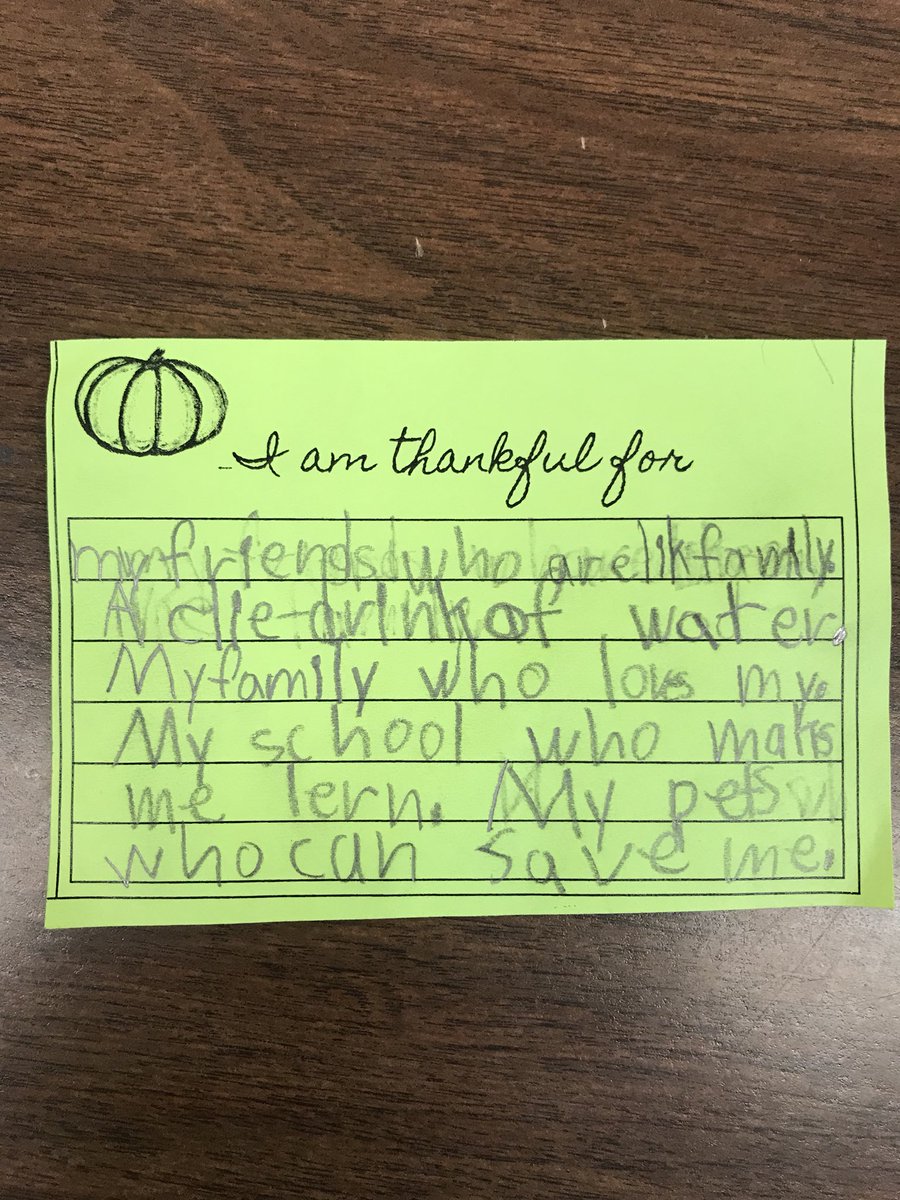 I am thankful for
my friends who are lik family.
A clie drink of water.
My family who lovs my.
My school who maks
me lern. My pets
who can save me.